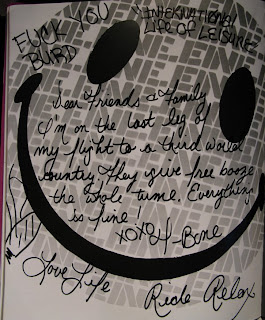 FUCK YOU
BURD
"INTERNATIONAL
LIFE OF LEISURE"
Dear Friends & Family
I'm on the last leg of
my flight to a third world
country they give free booze
the whole time. Everything
is fine!
XOXO
-Bone
Love Life
Ride Relax